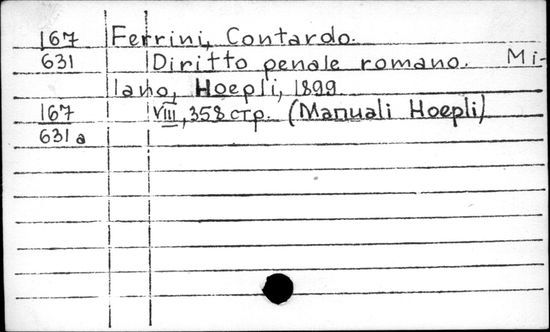 167 Ferrini, Contardo.
631 Diritto penale romano. Mi-
lano, Hoepli, 1899.
167 VIII, 358 стр. (Manuali Hoepli)
631a